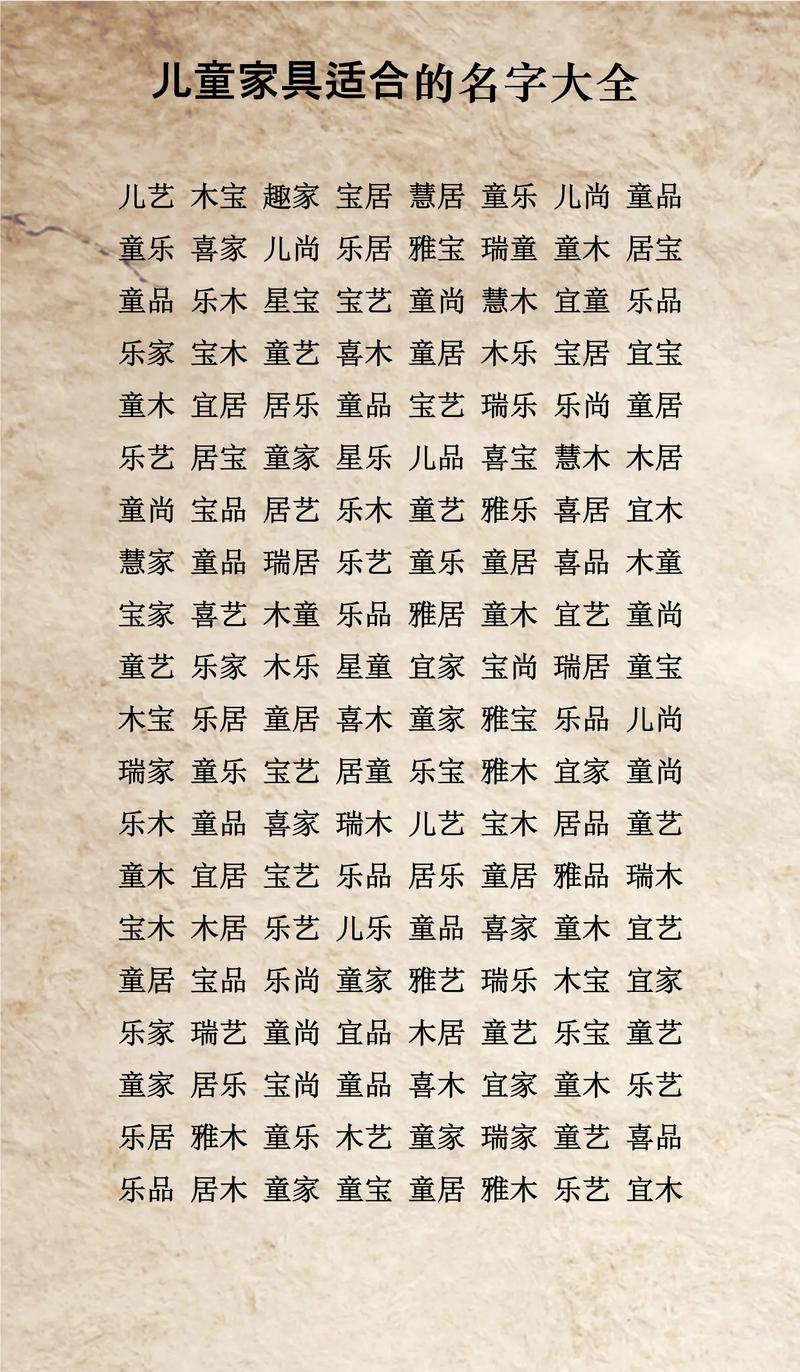 儿童家具适合的名字大全
儿艺 木宝 趣家 宝居 慧居 童乐 儿尚 童品
童乐 喜家 儿尚 乐居 雅宝 瑞童 童木 居宝
童品 乐木 星宝 宝艺 童尚 慧木 宜童 乐品
乐家 宝木 童艺 喜木 童居 木乐 宝居 宜宝
童木 宜居 居乐 童品 宝艺 瑞乐 乐尚 童居
乐艺 居宝 童家 星乐 儿品 喜宝 慧木 木居
童尚 宝品 居艺 乐木 童艺 雅乐 喜居 宜木
慧家 童品 瑞居 乐艺 童乐 童居 喜品 木童
宝家 喜艺 木童 乐品 雅居 童木 宜艺 童尚
童艺 乐家 木乐 星童 宜家 宝尚 瑞居 童宝
木宝 乐居 童居 喜木 童家 雅宝 乐品 儿尚
瑞家 童乐 宝艺 居童 乐宝 雅木 宜家 童尚
乐木 童品 喜家 瑞木 儿艺 宝木 居品 童艺
童木 宜居 宝艺 乐品 居乐 童居 雅品 瑞木
宝木 木居 乐艺 儿乐 童品 喜家 童木 宜艺
童居 宝品 乐尚 童家 雅艺 瑞乐 木宝 宜家
乐家 瑞艺 童尚 宜品 木居 童艺 乐宝 童艺
童家 居乐 宝尚 童品 喜木 宜家 童木 乐艺
乐居 雅木 童乐 木艺 童家 瑞家 童艺 喜品
乐品 居木 童家 童宝 童居 雅木 乐艺 宜木